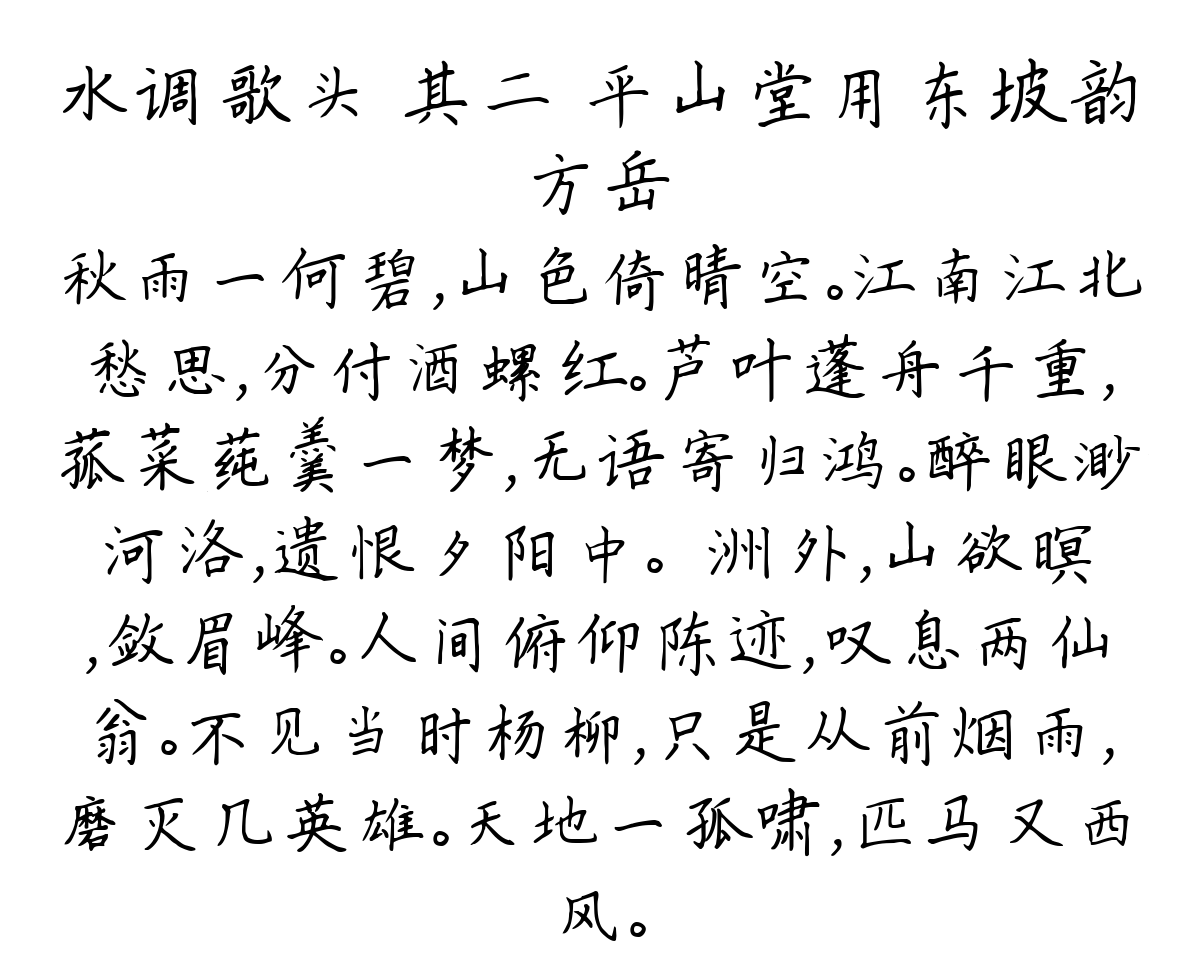 水调歌头 其二 平山堂用东坡韵
方岳
秋雨一何碧,山色倚晴空。江南江北
愁思,分付酒螺红。芦叶蓬舟千重,
菰菜莼羹一梦,无语寄归鸿。醉眼渺
河洛,遗恨夕阳中。 洲外,山欲暝
,敛眉峰。人间俯仰陈迹,叹息两仙
翁。不见当时杨柳,只是从前烟雨,
磨灭几英雄。天地一孤啸,匹马又西
风。